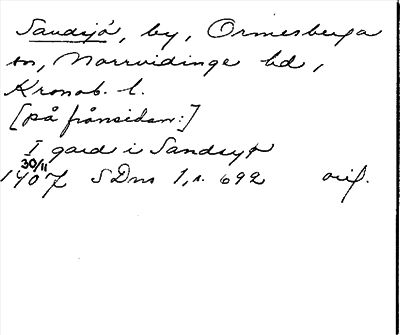 Sandsjö, by, Ormesberga
sn, Norrvidinge hd,
Kronob. l.
[på frånsidan:]
I gard i Sandsyø
30/11
1407 SDns 1, s. 692 orig.